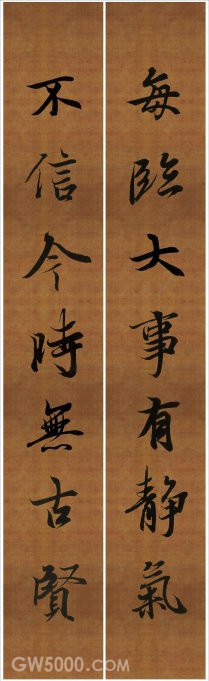 每臨大事有靜氣
不信今時無古賢
GW5000.com